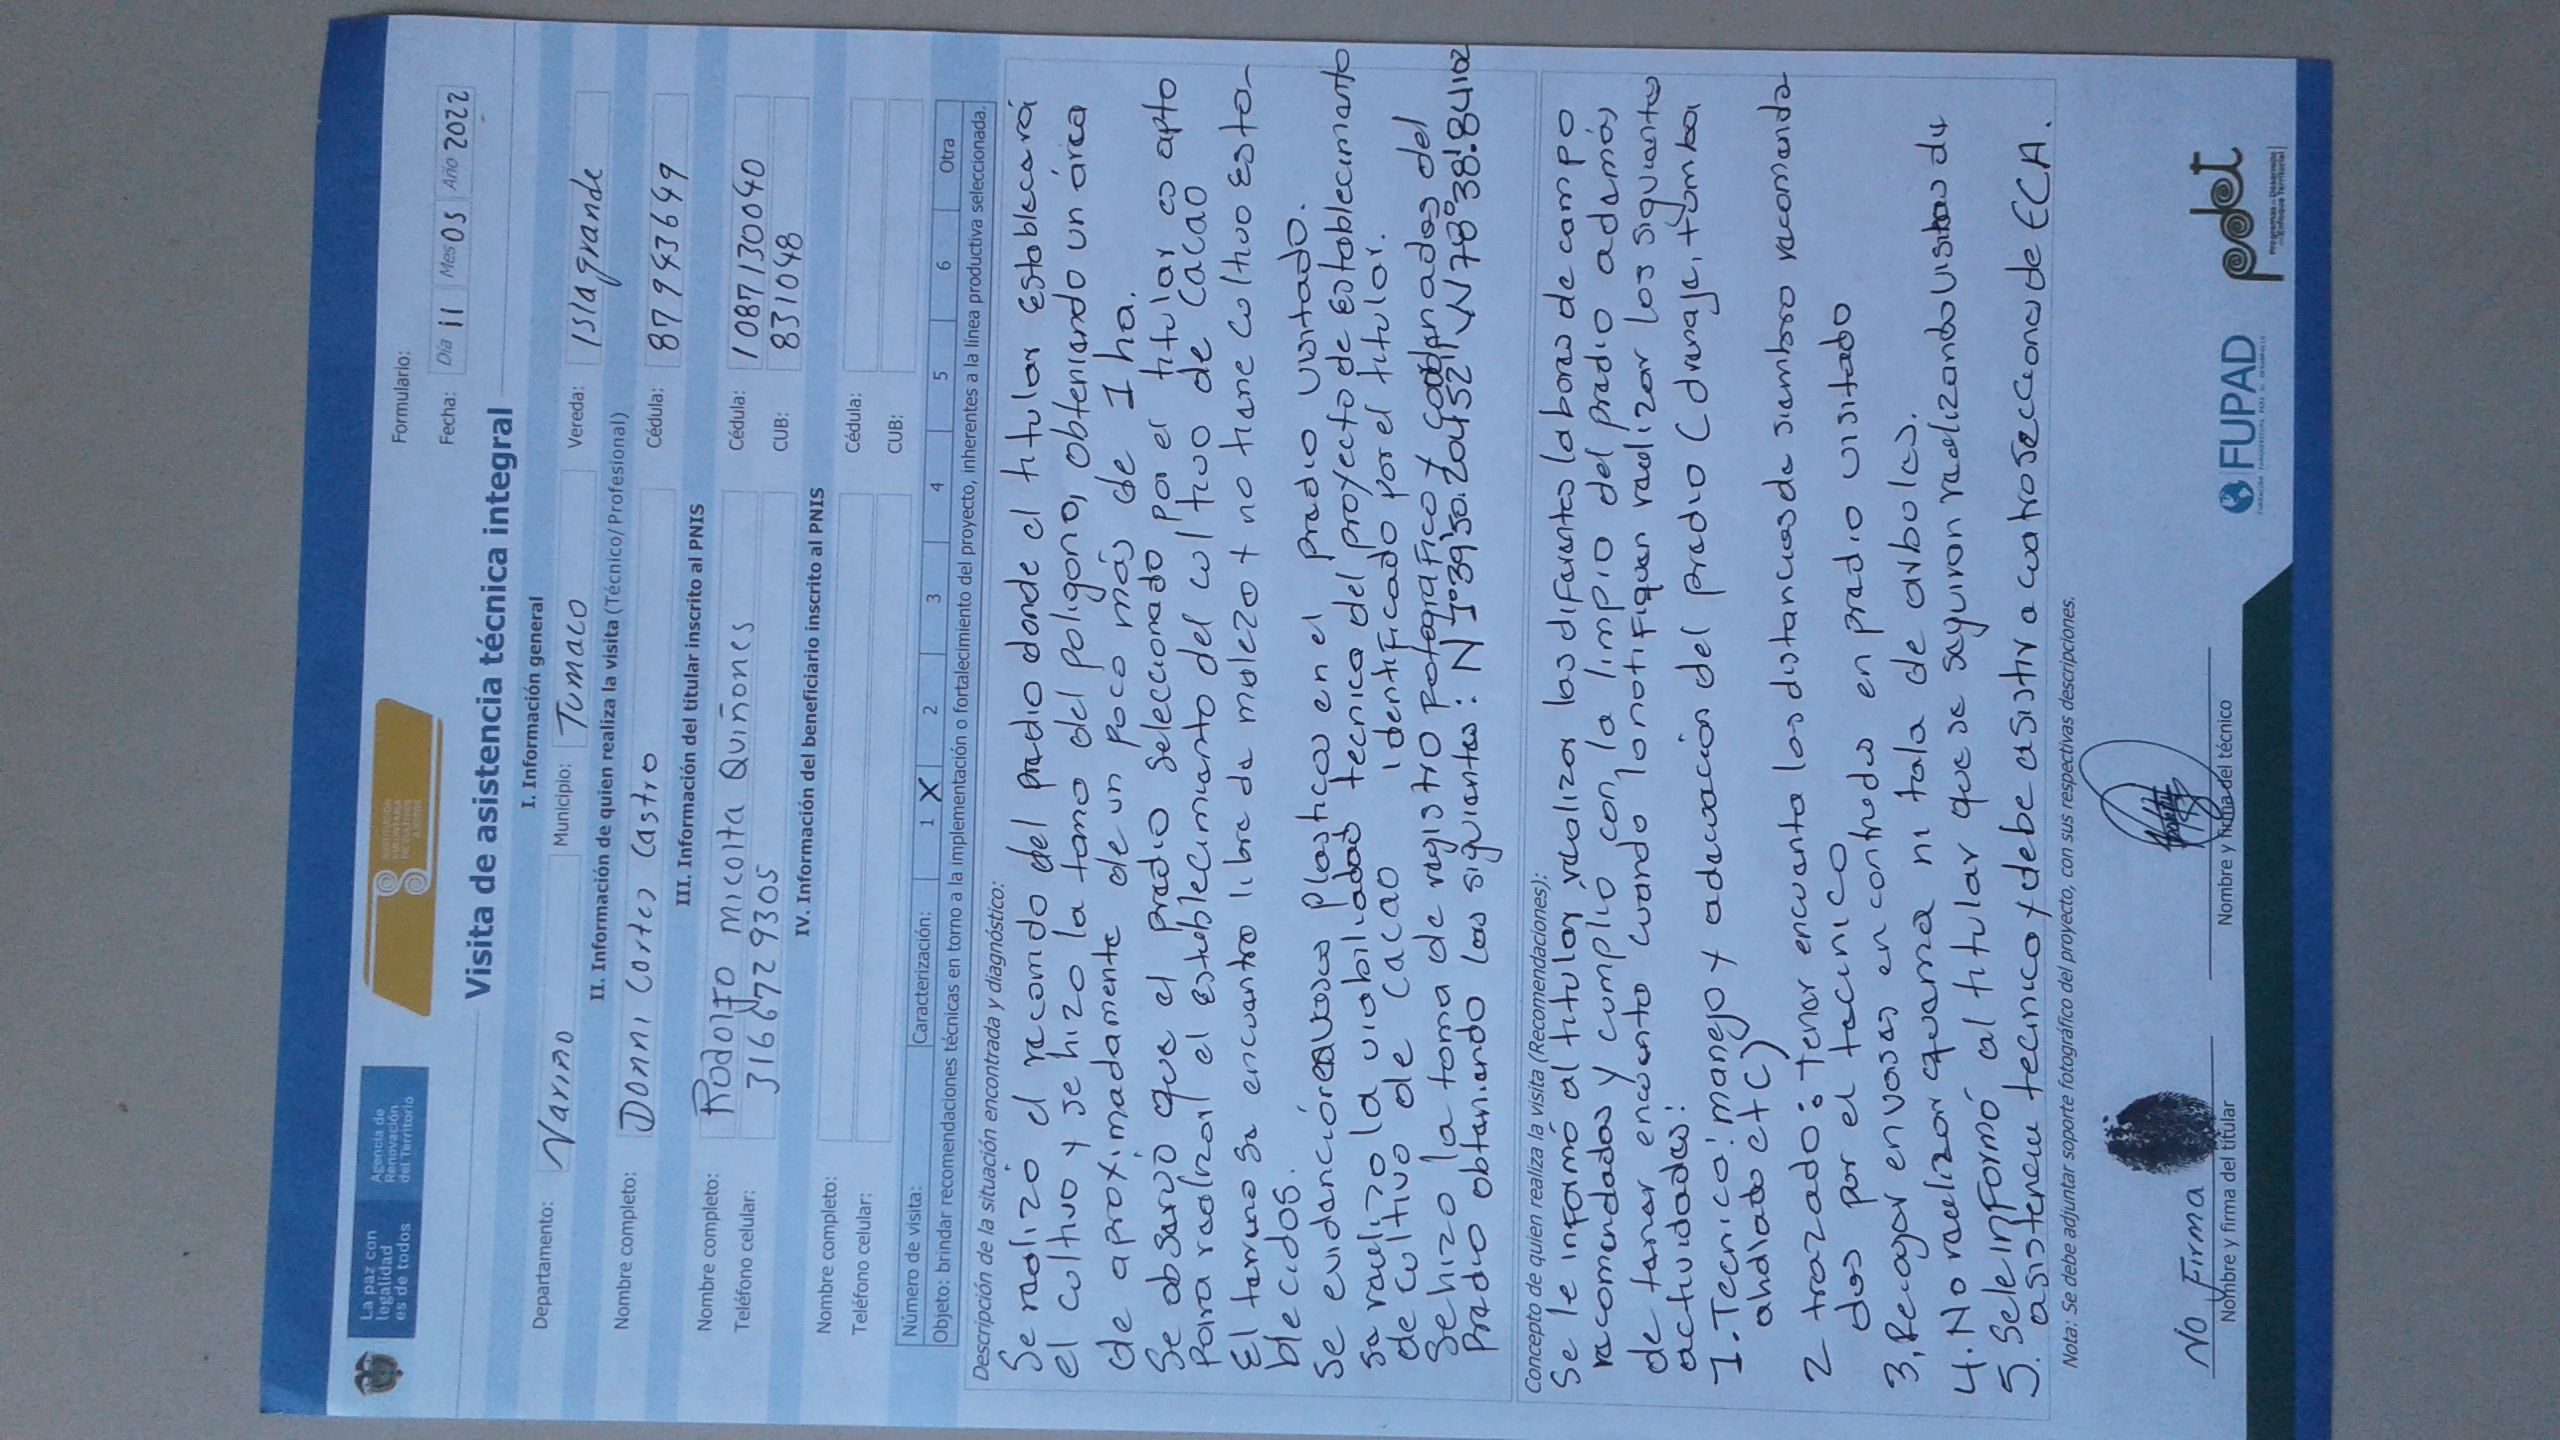 La paz con
legalidad
es de todos
Agencia de
Renovación
del Territorio
SUSTITUCIÓN
VOLUNTARIA
DE CULTIVOS
ILÍCITOS
Formulario:
Fecha: Día 11 Mes 05 Año 2022
Visita de asistencia técnica integral
I. Información general
Departamento: Nariño Municipio: Tumaco Vereda: Isla grande
II. Información de quien realiza la visita (Técnico/Profesional)
Nombre completo: Donni Cortes Castro Cédula: 87943649
III. Información del titular inscrito al PNIS
Nombre completo: Rodolfo Micolta Quiñones Cédula: 1087130040
Teléfono celular: 3166729305 CUB: 831048
IV. Información del beneficiario inscrito al PNIS
Nombre completo: Cédula:
Teléfono celular: CUB:
Número de visita: Caracterización: 1 X 2 3 4 5 6 Otra
Objeto: brindar recomendaciones técnicas en torno a la implementación o fortalecimiento del proyecto, inherentes a la línea productiva seleccionada.
Descripción de la situación encontrada y diagnóstico:
Se realizó el recorrido del predio donde el titular establecerá
el cultivo y se hizo la toma del poligono, obteniendo un área
de aproximadamente de un poco más de 1 ha.
Se observó que el predio seleccionado por el titular es apto
para realizar el establecimiento del cultivo de cacao
El terreno se encuentra libre de maleza y no tiene cultivo esta-
blecidos.
Se evidenció plasticos en el predio visitado.
se realizo la viabilidad tecnica del proyecto de establecimiento
de cultivo de cacao identificado por el titular.
Se hizo la toma de registro fotografico y coordenadas del
predio obteniendo las siguientes: N 1°39'50.204521" W 78°38'.84102
Concepto de quien realiza la visita (Recomendaciones):
Se le informó al titular realizar las diferentes labores de campo
recomendadas y cumplió con la limpia del predio además
de tener en cuenta cuando lo notifiquen realizar las siguientes
actividades:
1. Tecnica: manejo y adecuación del predio (drenaje, tomba
ahollado etc)
2 trazado: Tener encuenta las distancias de siembra recomenda
das por el tecnico
3. Recoger envases encontrados en predio visitado
4. No realizar quema ni tala de arboles.
5. Se le informó al titular que se seguiran realizando visitas de
asistencia tecnica y debe asistir a cuatro secciones de ECA.
Nota: Se debe adjuntar soporte fotográfico del proyecto, con sus respectivas descripciones.
No Firma
Nombre y firma del titular
Nombre y firma del técnico
FUPAD
pdet
Programas de Desarrollo
con Enfoque Territorial